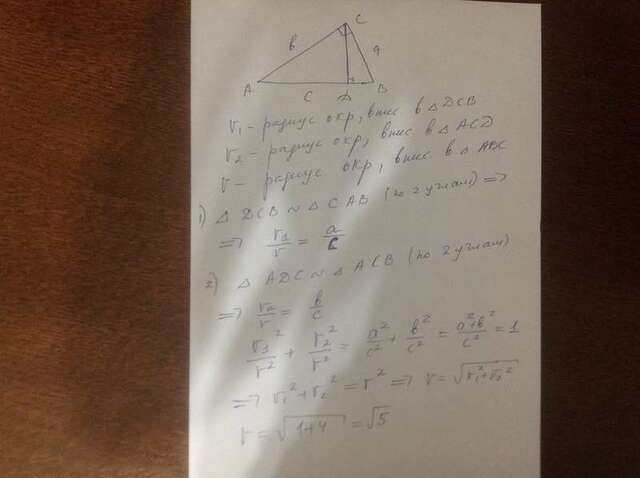 C
в a
A C D B
r₁ - радиус окр, впис в △DCB
r₂ - радиус окр, впис в △ACD
r - радиус окр, впис в △ABC
1) △ DCB ~ △ CAB (по 2 углам) =>
=> r₁/r = a/c
2) △ ADC ~ △ ACB (по 2 углам)
=> r₂/r = в/c
r₁²/r² + r₂²/r² = a²/c² + в²/c² = a²+в²/c² = 1
=> r₁² + r₂² = r² => r = √r₁²+r₂²
r = √1+4 = √5